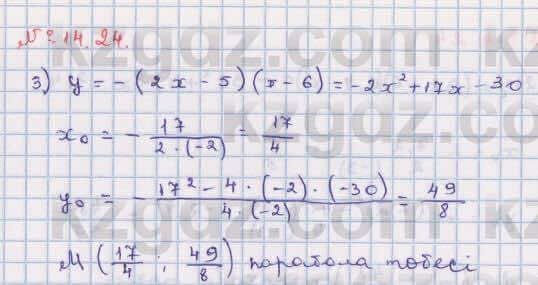 № 14.24.
3) y = -(2x - 5)(x - 6) = -2x² + 17x - 30
x₀ = - 17/(2·(-2)) = 17/4
y₀ = - (17² - 4·(-2)·(-30))/(4·(-2)) = 49/8
M (17/4 ; 49/8) парабола төбесі
kzgdz.com